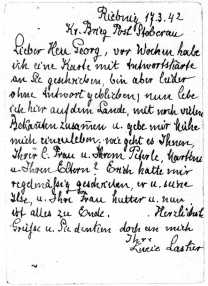 Riebnig 17.3.42
Kr. Brieg Post Stoberau
Lieber Herr Georg, vor Wochen habe
ich eine Karte mit Antwortkarte
an Sie geschrieben, bin aber leider
ohne Antwort geblieben, nun lebe
ich hier auf dem Lande, mit noch vielen
Bekannten zusammen u. gebe mir Mühe
mich einzuleben, wie geht es Ihnen,
Ihrer l. Frau u. Ihrem
u. Ihren Eltern? Erich hatte mir
regelmäßig geschrieben, er u. seine
Ilse, u. Ihre Frau Mutter u. nun
ist alles zu Ende. Herzlichst
Grüße u. Sie denken doch an mich
Ihre
Lucie